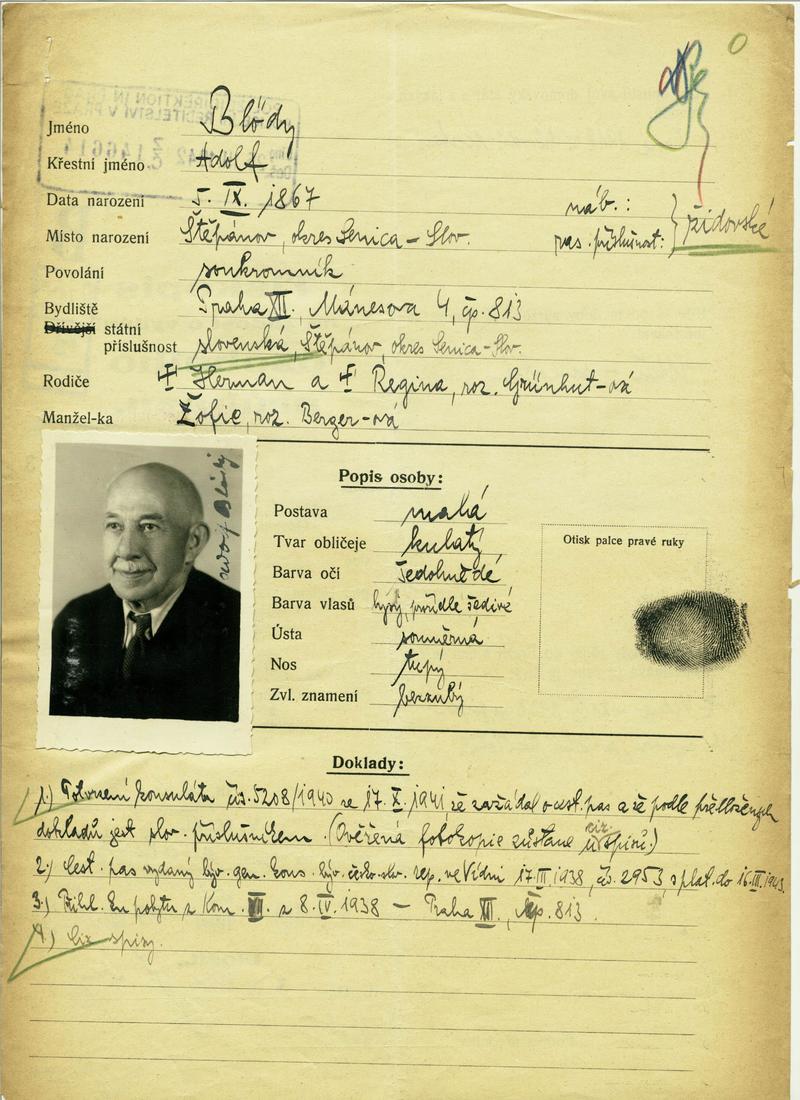 Jméno Blödy
Křestní jméno Adolf
Data narození 5. IX. 1867 náb.:
Místo narození Štěpánov, okres Senica – Slov. ras. příslušnost: } židovské
Povolání soukromník
Bydliště Praha XII, Mánesova 4, čp. 813
Dřívější státní
příslušnost slovenská, Štěpánov, okres Senica-Slov.
Rodiče Herman a Regina, roz. Grünhut-ová
Manžel-ka Žofie, roz. Berger-ová
Adolf Blödy
Popis osoby:
Postava malá
Tvar obličeje kulatý
Barva očí šedohnědé
Barva vlasů lysý, šedivé
Ústa souměrná
Nos tupý
Zvl. znamení bezzubý
Otisk palce pravé ruky
Doklady:
1.) Potvrzení konsulátu čís. 5208/1940 ze 17. X. 1941, že zažádal o cest. pas a že podle předložených
dokladů jest slov. příslušníkem. (Ověřená fotokopie zůstane u spisů.)
2.) Cest. pas vydaný býv. gen. kons. býv. česko-slov. rep. ve Vídni 17. III. 1938, čís. 2953, s plat. do 16. III. 1943.
3.) Přihl. ku pobytu z Kom. XII. z 8. IV. 1938 – Praha XII., čp. 813.
4.) Ciz. spisy.